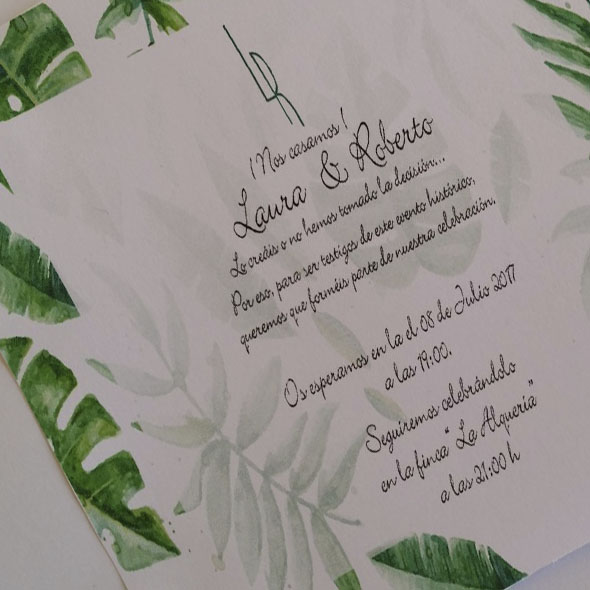 LR
¡Nos casamos!
Laura & Roberto
Lo creáis o no hemos tomado la decisión...
Por eso, para ser testigos de este evento histórico,
queremos que forméis parte de nuestra celebración.
Os esperamos en la el 08 de Julio 2017
a las 19:00.
Seguiremos celebrándolo
en la finca "La Alquería"
a las 21:00 h